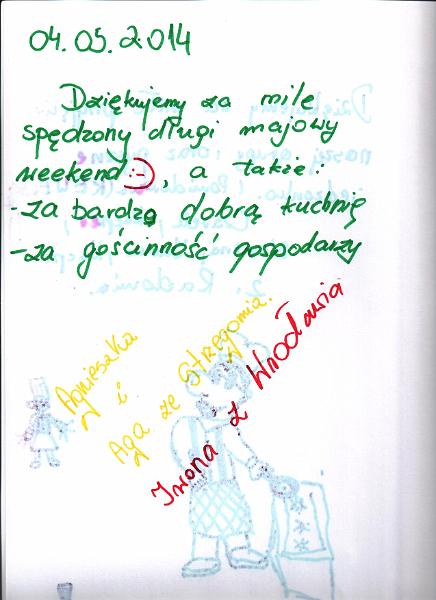 04.05.2014
Dziękujemy za mile
spędzony długi majowy
weekend :-), a także:
-za bardzo dobrą kuchnię
-za gościnność gospodarzy
Agnieszka
i
Aga ze Strzegomia.
Iwona z Wrocławia